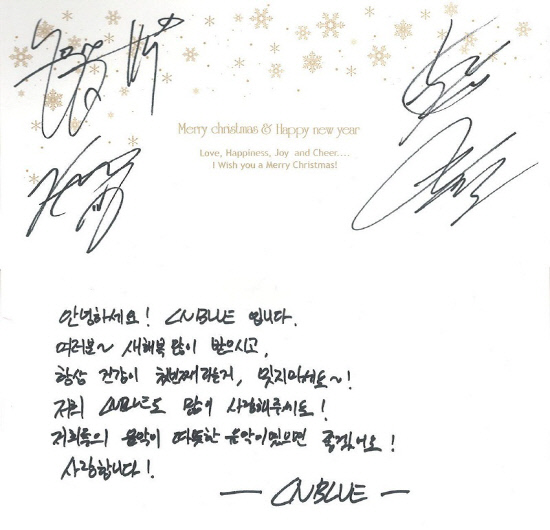 Merry christmas & Happy new year
Love, Happiness, Joy and Cheer....
I Wish you a Merry Christmas!
안녕하세요! CNBLUE 입니다.
여러분~ 새해복 많이 받으시고,
항상 건강이 첫번째라는거, 잊지마세요~!
저희 CNBLUE도 많이 사랑해주시고!
저희들의 음악이 따뜻한 음악이였으면 좋겠어요!
사랑합니다!
— CNBLUE —